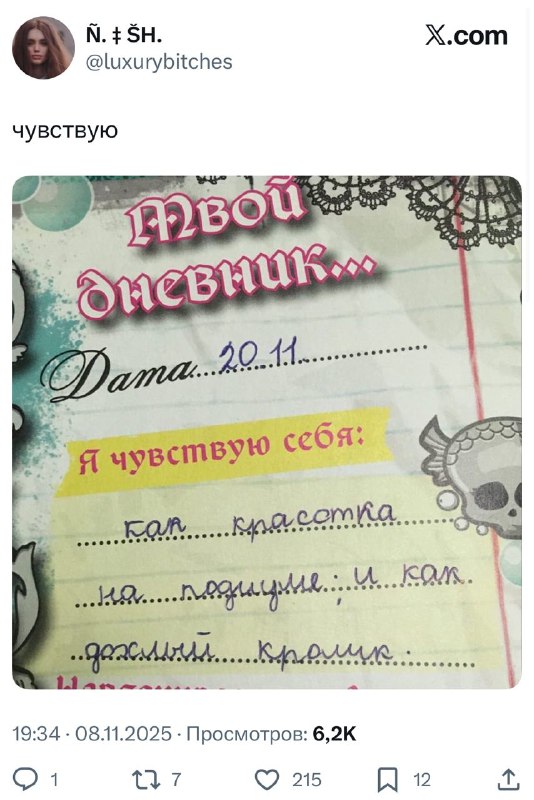 Ñ. ‡ ŠH.
@luxurybitches
X.com
чувствую
Твой
дневник...
Дата 20.11.
Я чувствую себя:
как красотка
на подиуме; и как
дохлый кролик.
19:34 · 08.11.2025 · Просмотров: 6,2K
1 7 215 12